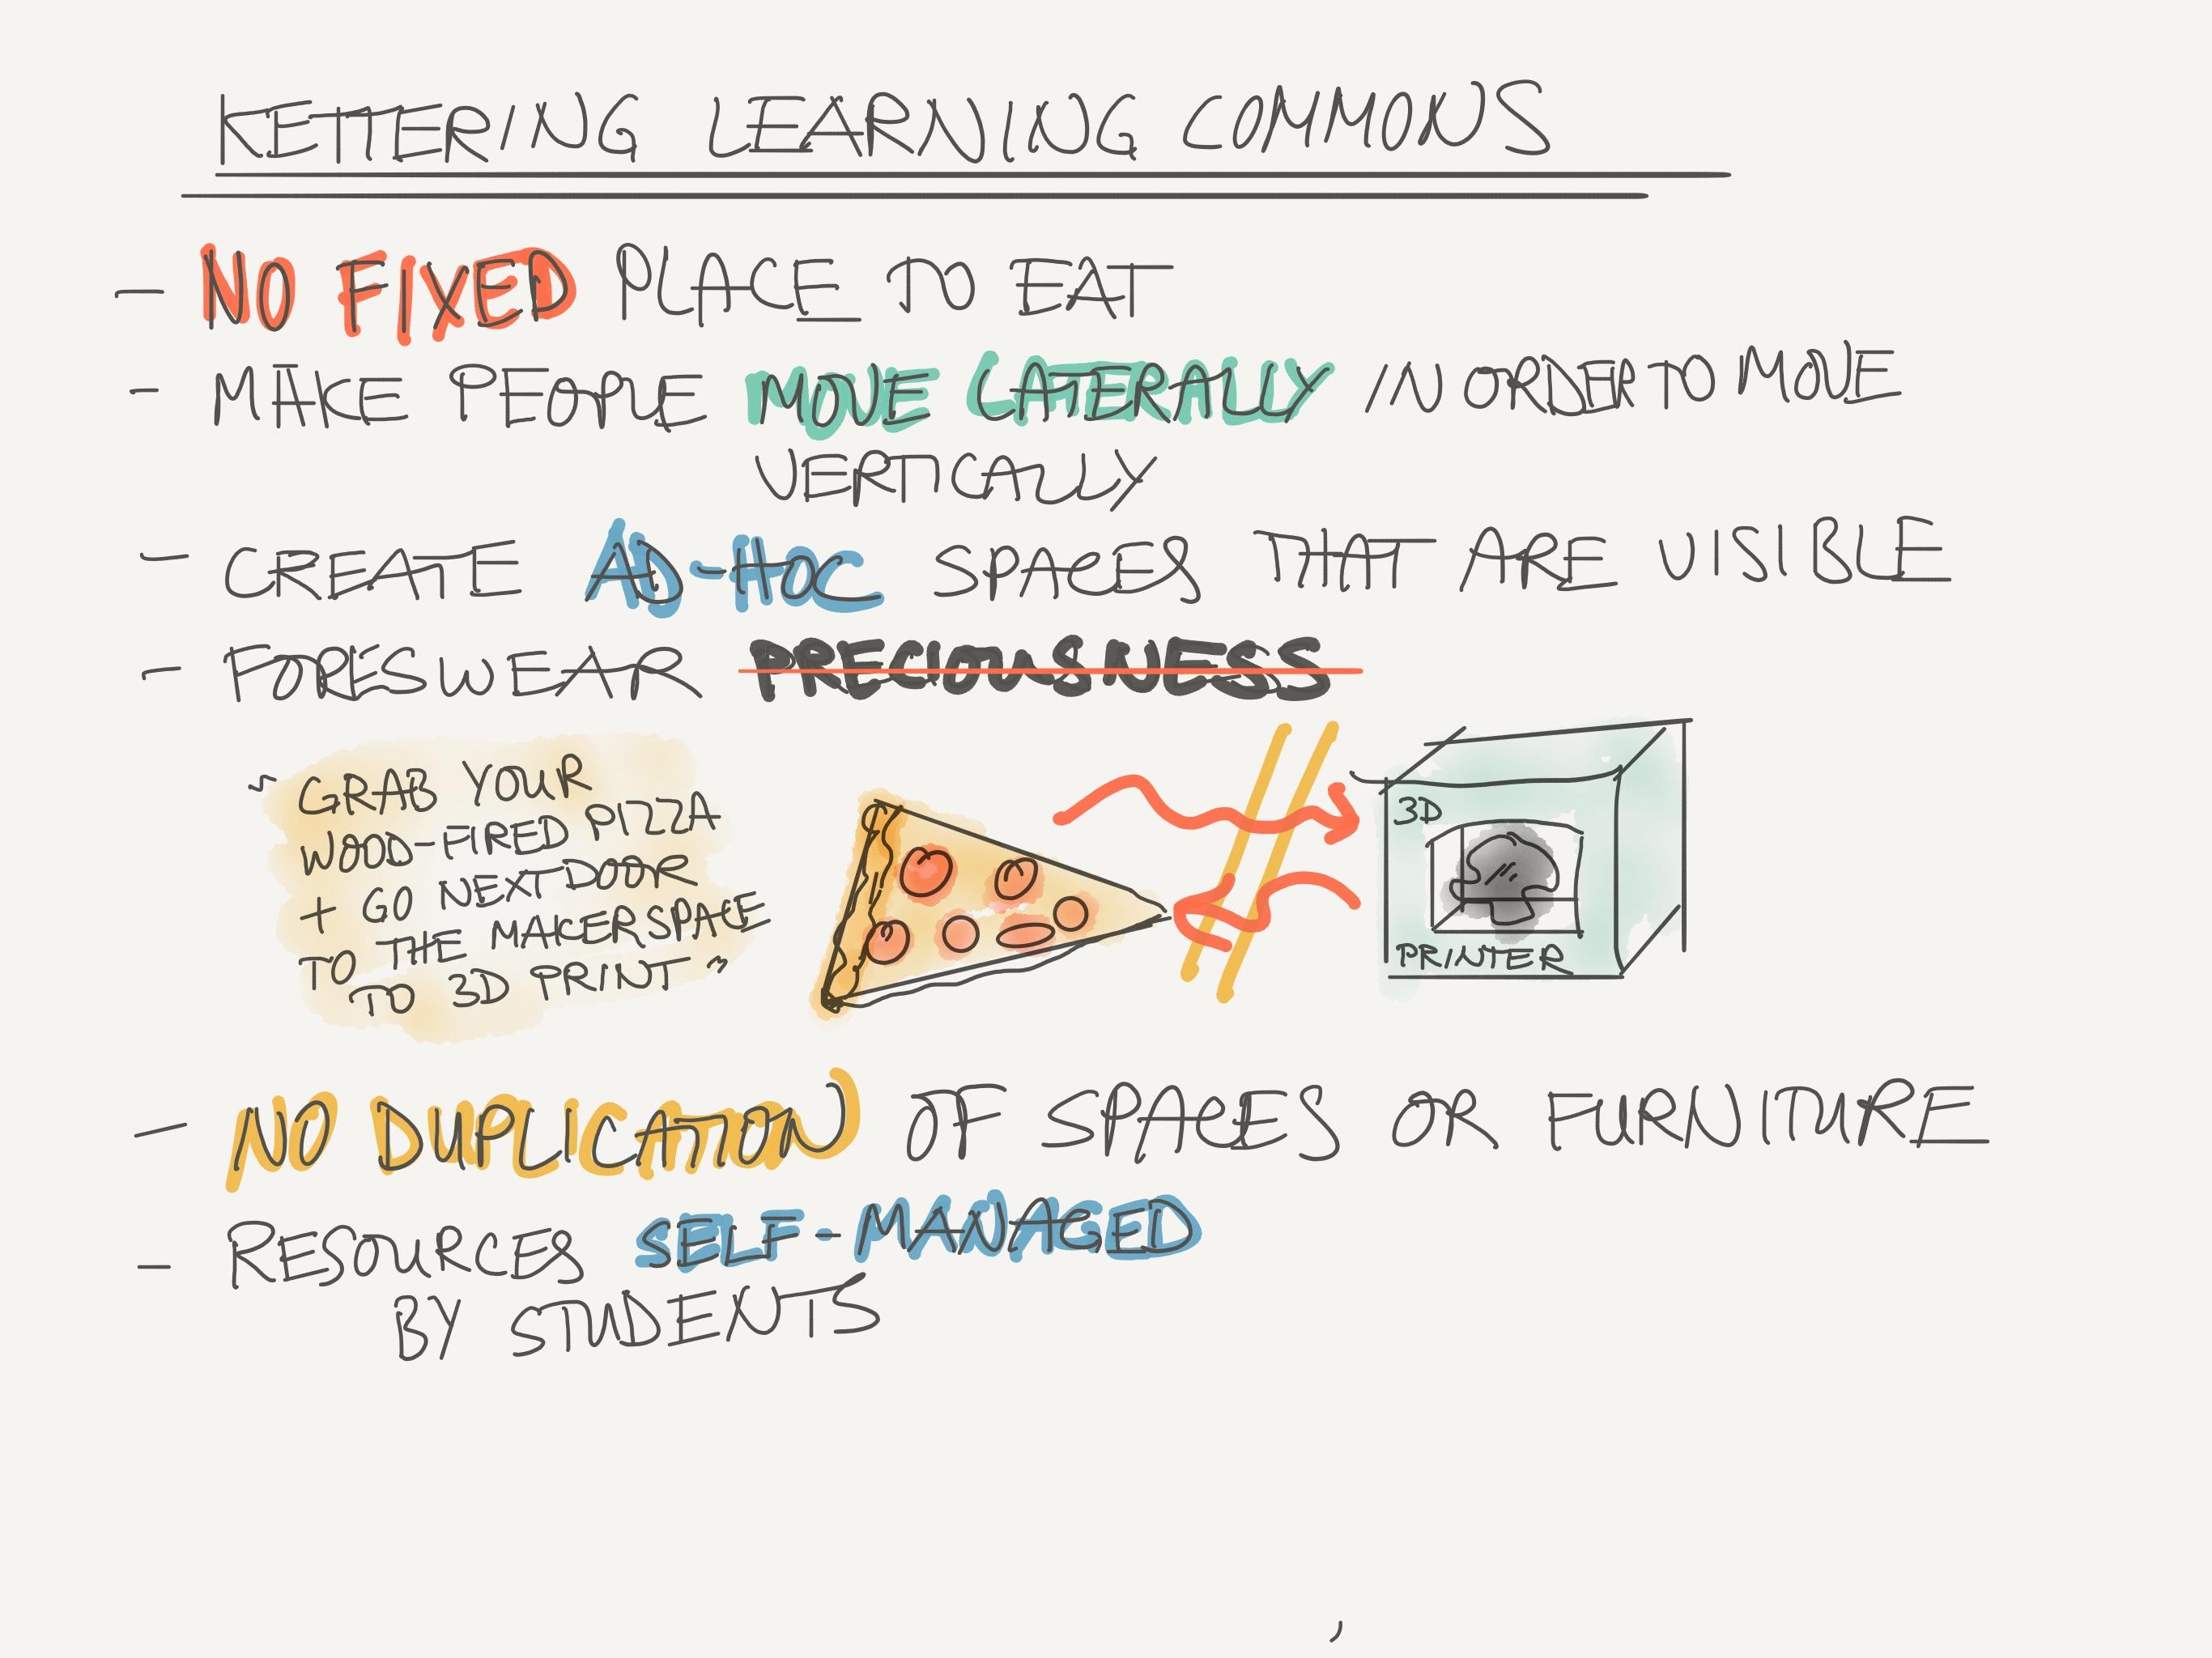 KETTERING LEARNING COMMONS
- NO FIXED PLACE TO EAT
- MAKE PEOPLE MOVE LATERALLY IN ORDER TO MOVE
VERTICALLY
- CREATE AD-HOC SPACES THAT ARE VISIBLE
- FORESWEAR PRECIOUSNESS
"GRAB YOUR
WOOD-FIRED PIZZA
+ GO NEXT DOOR
TO THE MAKERSPACE
TO 3D PRINT"
3D
PRINTER
- NO DUPLICATION OF SPACES OR FURNITURE
- RESOURCES SELF-MANAGED
BY STUDENTS